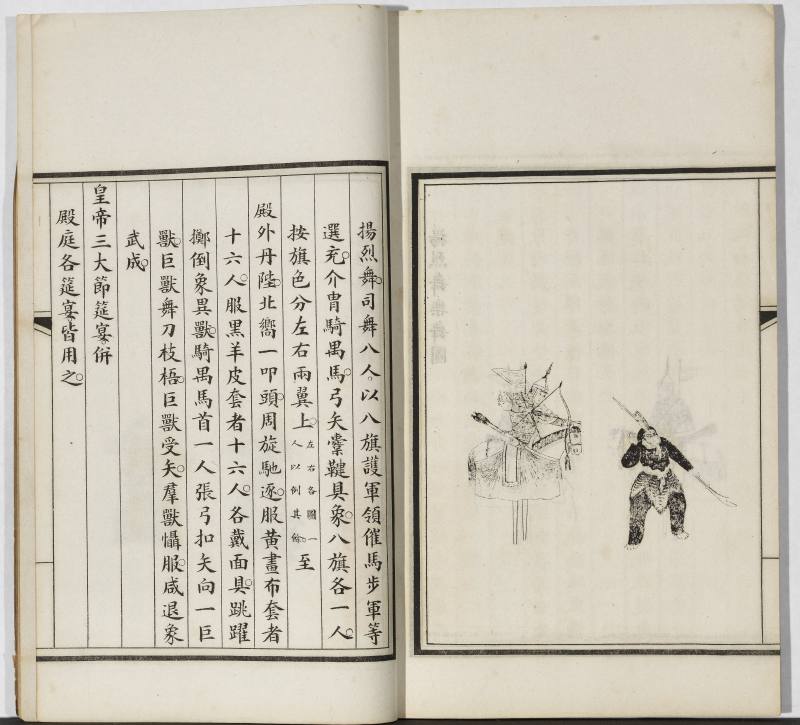 揚烈舞司舞八人。以八旗護軍領催馬步軍等
選充。介冑騎禺馬。弓矢櫜鞬具。象八旗各一人。
按旗色分左右兩翼上左右各圖一人以例其餘。至
殿外丹陛。北嚮一叩頭。周旋馳逐。服黃畫布套者
十六人。服黑羊皮套者十六人。各戴面具。跳躍
擲倒象異獸。騎禺馬首一人張弓扣矢向一巨
獸。巨獸舞刀枝梧。巨獸受矢。羣獸懾服。咸退。象
武成。
皇帝三大節筵宴。併
殿庭各筵宴。皆用之。